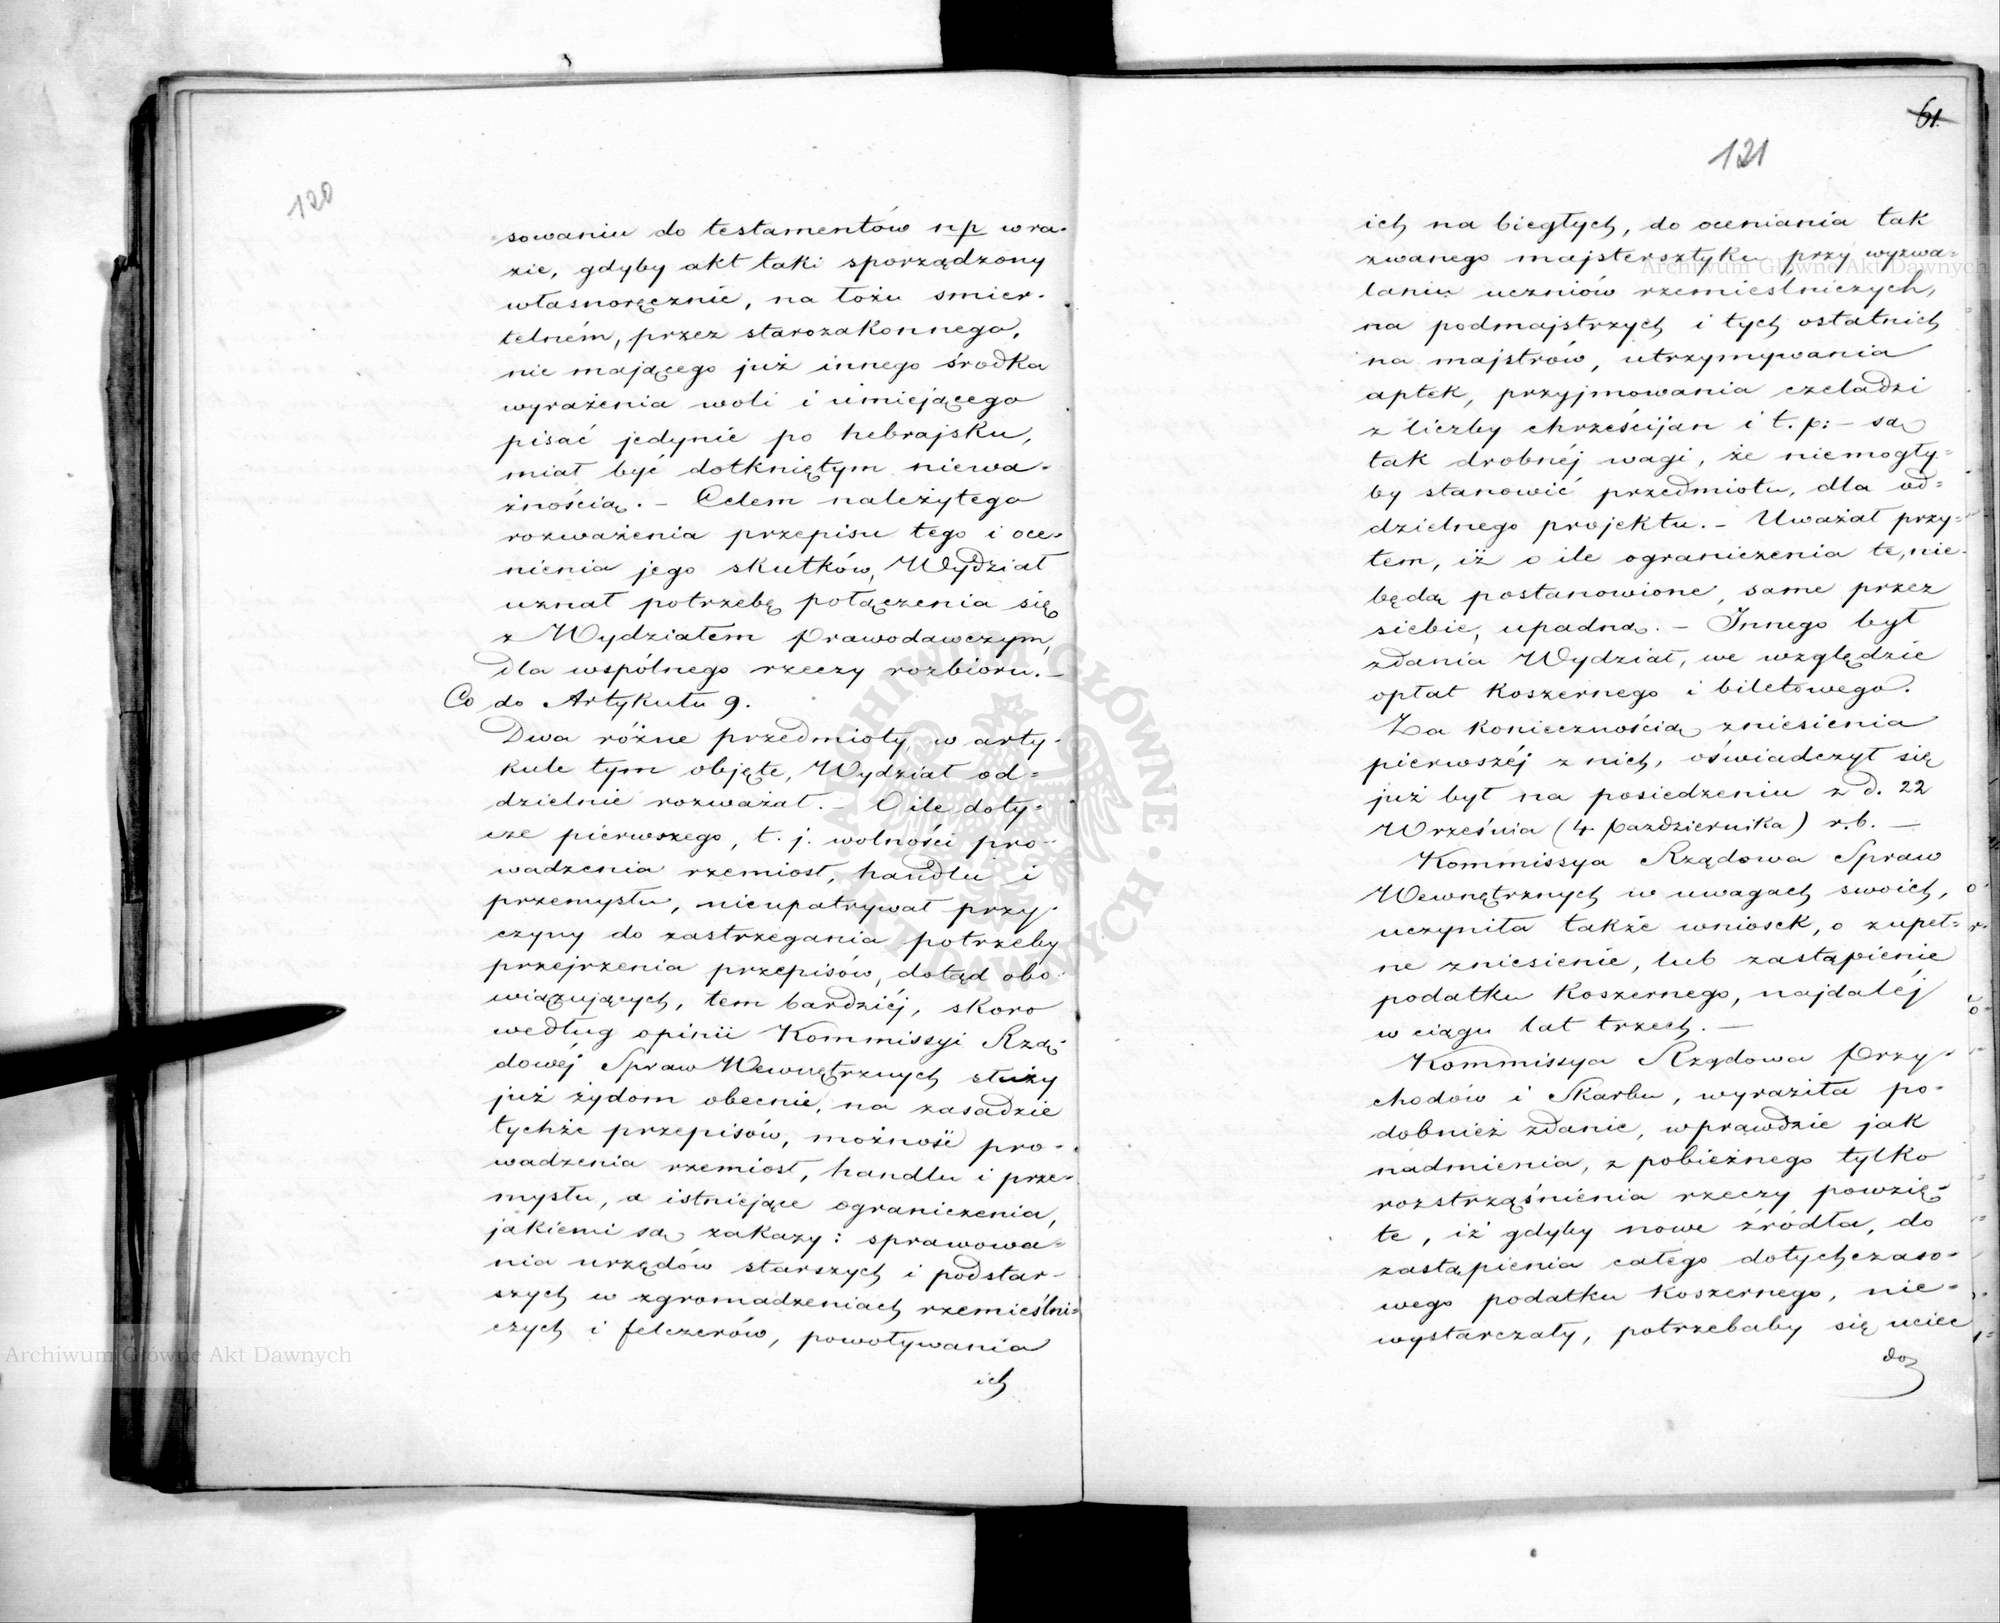 120
sowaniu do testamentów np w ra-
zie, gdyby akt taki sporządzony
własnoręcznie, na łożu śmier-
telném, przez starozakonnego,
nie mającego już innego środka
wyrażenia woli i umiejącego
pisać jedynie po hebrajsku,
miał być dotkniętym niewa-
żnością. – Celem należytego
rozważenia przepisu tego i oce-
nienia jego skutków, Wydział
uznał potrzebę połączenia się
z Wydziałem Prawodawczym,
dla wspólnego rzeczy rozbioru. –
Co do Artykułu 9.
Dwa różne przedmioty w arty-
kule tym objęte, Wydział od=
dzielnie rozważał. – O ile doty-
cze pierwszego, t. j. wolności pro-
wadzenia rzemiosł, handlu i
przemysłu, nieupatrywał przy-
czyny do zastrzegania potrzeby
przejrzenia przepisów, dotąd obo-
wiązujących, tem bardziéj, skoro
według opinii Kommissyi Rzą-
dowéj Spraw Wewnętrznych służy
już żydom obecnie, na zasadzie
tychże przepisów, możność pro-
wadzenia rzemiosł, handlu i prze-
mysłu, a istniejące ograniczenia,
jakiemi są zakazy: sprawowa=
nia urzędów starszych i podstar-
szych w zgromadzeniach rzemieślni=
czych i felczerów, powoływania
ich
61.
121
ich na biegłych, do oceniania tak
zwanego majstersztyku przy wyzwa=
laniu uczniów rzemieślniczych,
na podmajstrzych i tych ostatnich
na majstrów, utrzymywania
aptek, przyjmowania czeladzi
z liczby chrześcijan i t. p: – są
tak drobnéj wagi, że niemogły=
by stanowić przedmiotu, dla od=
dzielnego projektu. – Uważał przy-
tem, iż o ile ograniczenia te, nie-
będą postanowione, same przez
siebie, upadną. – Innego był
zdania Wydział, we względzie
opłat koszernego i biletowego.
Za koniecznością zniesienia
pierwszéj z nich, oświadczył się
już był na posiedzeniu z d. 22
Września (4 Października) r.b. –
Kommissya Rządowa Spraw
Wewnętrznych w uwagach swoich,
uczyniła także wniosek, o zupeł=
ne zniesienie, lub zastąpienie
podatku koszernego, najdaléj
w ciągu lat trzech. –
Kommissya Rządowa Przy-
chodów i Skarbu, wyraziła po-
dobnież zdanie, wprawdzie jak
nadmienia, z pobieżnego tylko
rozstrząśnienia rzeczy powzię-
te, iż gdyby nowe źródła, do
zastąpienia całego dotychczaso-
wego podatku koszernego, nie-
wystarczały, potrzebaby się uciec
do
Archiwum Główne Akt Dawnych
Archiwum Główne Akt Dawnych
ARCHIWUM GŁÓWNE AKT DAWNYCH